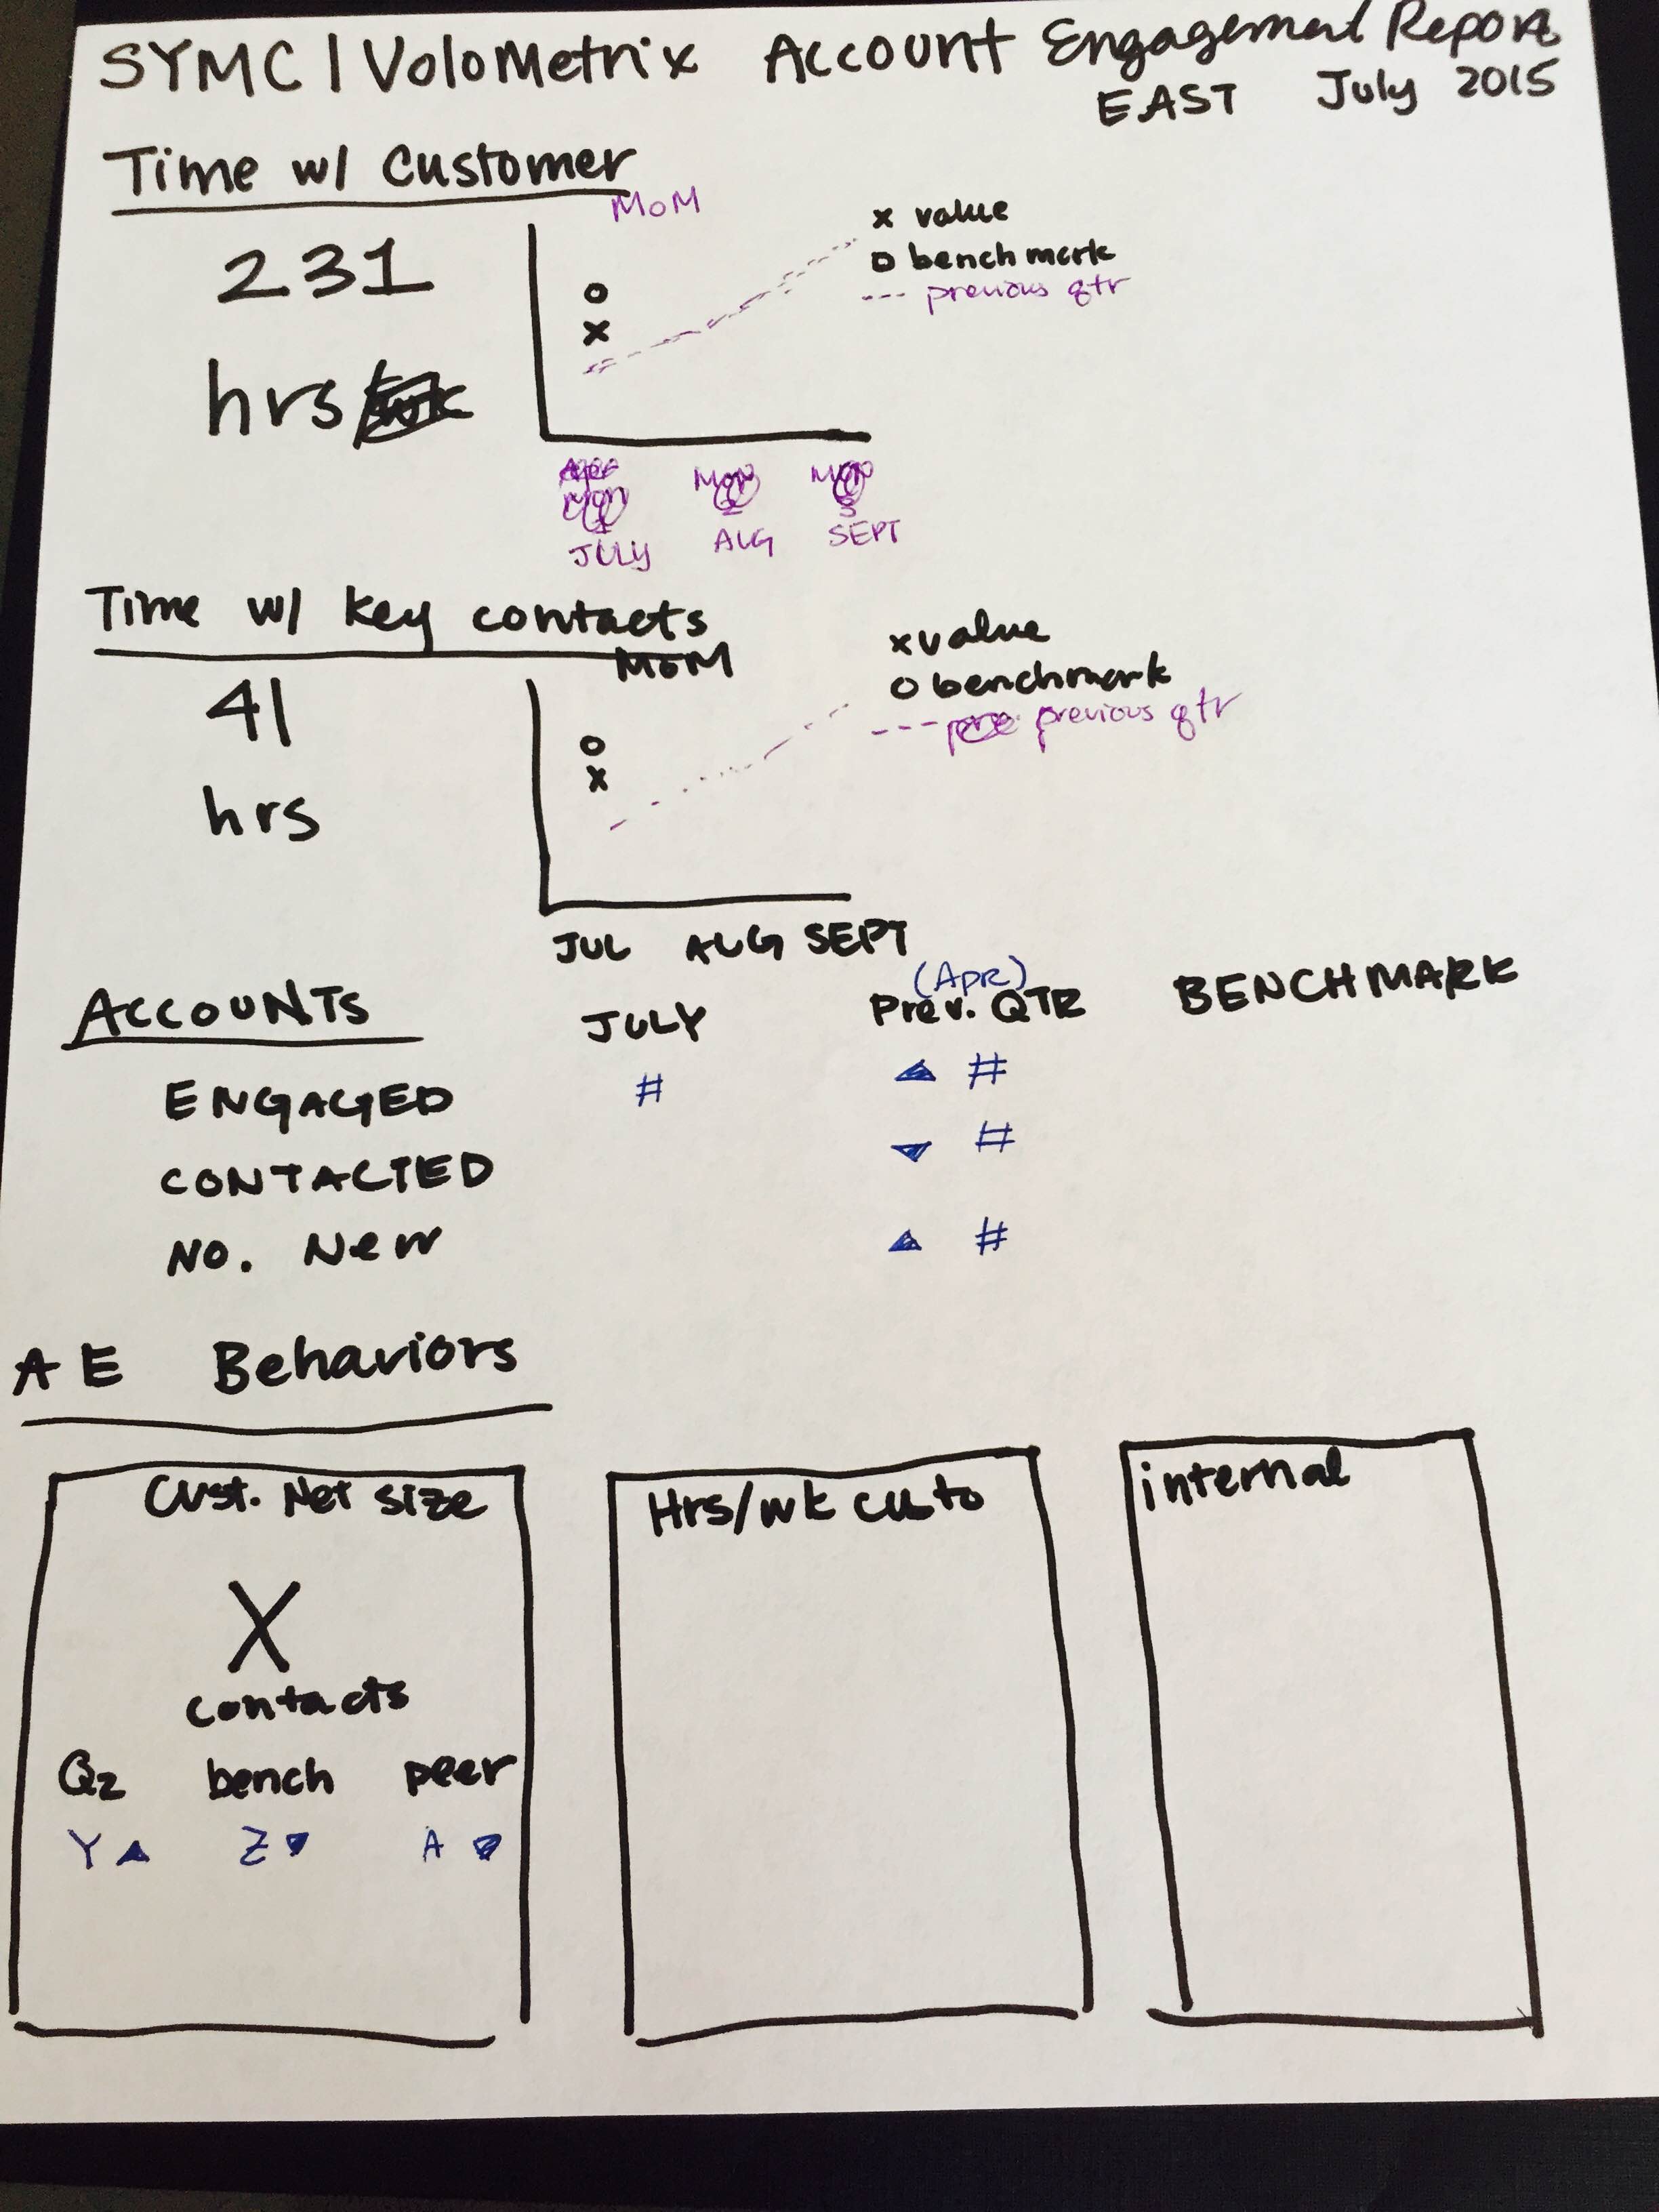 SYMC | VoloMetrix Account Engagement Report
EAST July 2015
Time w/ Customer
MoM
x value
o benchmark
--- previous qtr
231
hrs
JULY AUG SEPT
Time w/ key contacts
MoM
x value
o benchmark
--- previous qtr
41
hrs
JUL AUG SEPT
(Apr)
ACCOUNTS JULY Prev. QTR BENCHMARK
ENGAGED # ▲ #
CONTACTED ▼ #
NO. New ▲ #
AE Behaviors
Cust. Net size
X
contacts
Q2 bench peer
Y ▲ Z ▼ A ▼
Hrs/wk custo
internal